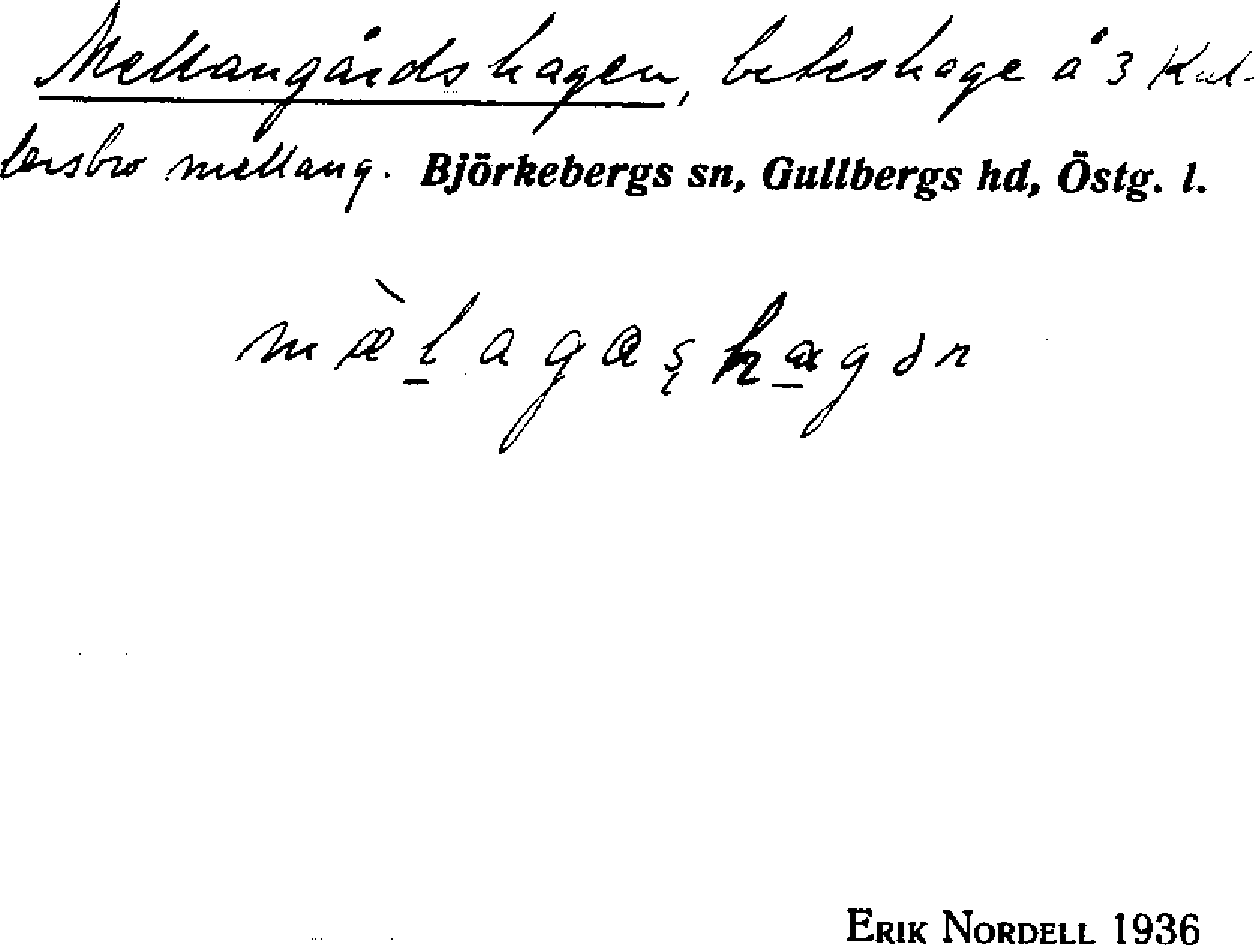 Mellangårdshagen, beteshage å 3 Kul-
lersbro mellang. Björkebergs sn, Gullbergs hd, Östg. l.
mæ̀l̠agaʂhagən
ERIK NORDELL 1936